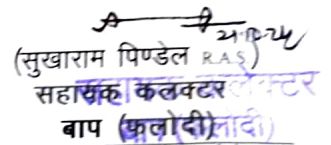 21-10-24
(सुखाराम पिण्डेल R.A.S)
सहायक कलक्टर
बाप (फलोदी)